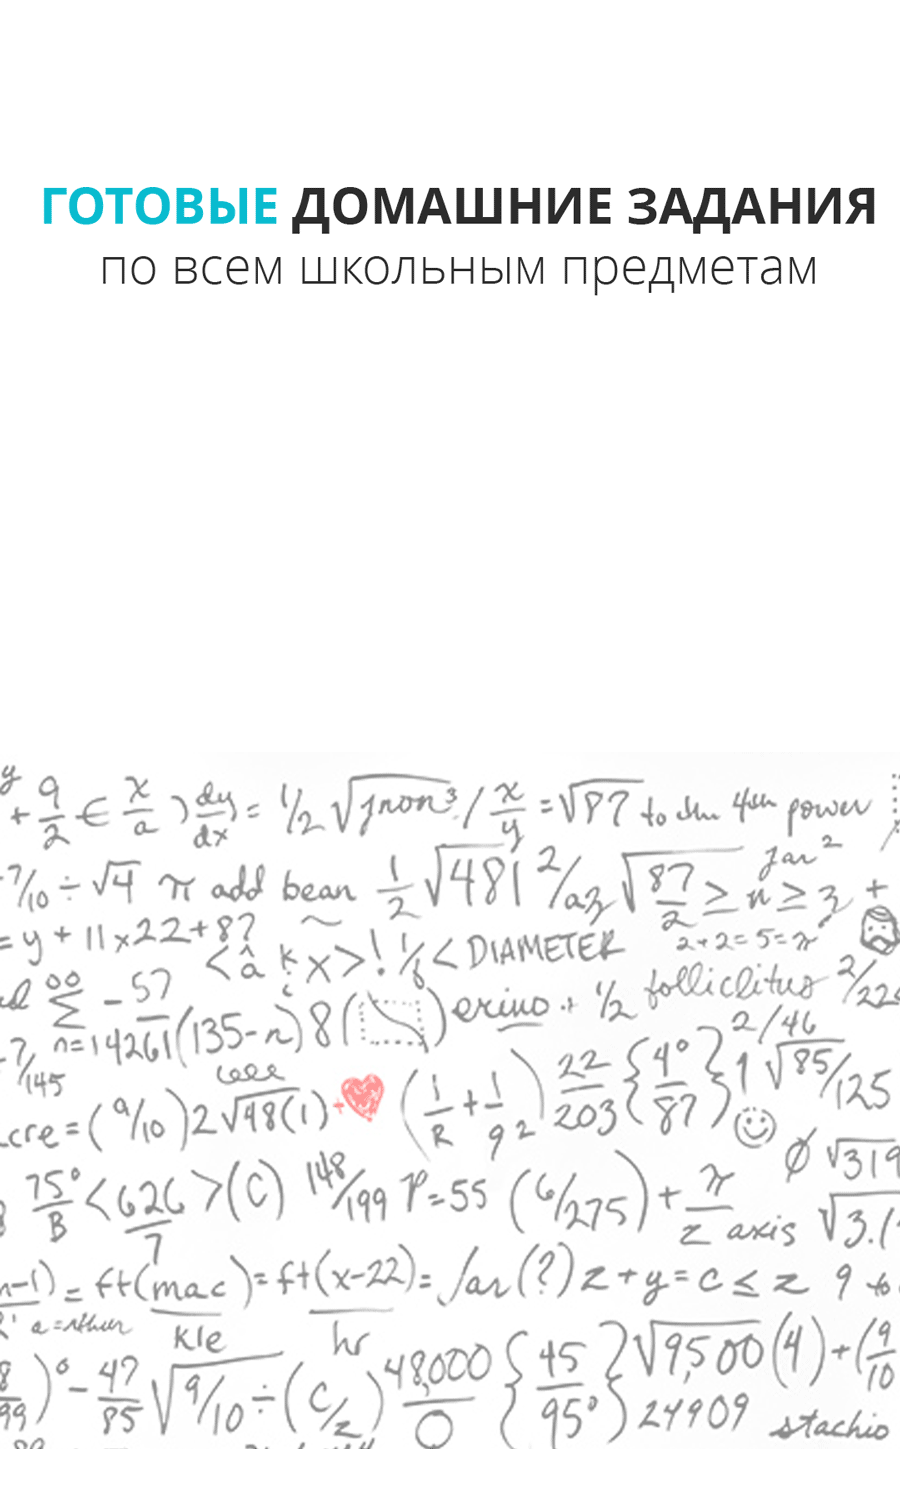 ГОТОВЫЕ ДОМАШНИЕ ЗАДАНИЯ
по всем школьным предметам
y + 9/2 ∈ x/a ) dy/dx = 1/2 √ / x/y = √87 to the 4th power
7/10 ÷ √4 π add bean 1/2 √481 2/az √87/2 ≥ n ≥ z +
= y + 11x22+8? < â x >! 1/8 < DIAMETER 2+2=5=π
∞ Σ - 57 n=14261 (135-n) 8 ( ) + 1/2 folliclitus
2/46
?/145 cre = (a/10) 2√48(1) + (1/R + 1/92) 22/203 {4°/87} 1 √85/125
75°/B <626/7> (C) 148/199 P=55 (6/275) + π/z axis Ø √319 √3.1
n-1) = ft(mac)/kle = ft(x-22)/hr = far(?) z + y = c ≤ z 9 to
)° - 47/85 √9/10 ÷ (c/z) 48,000/0 {45/95°} √9,500 (4) + (9/10
24909 stachio